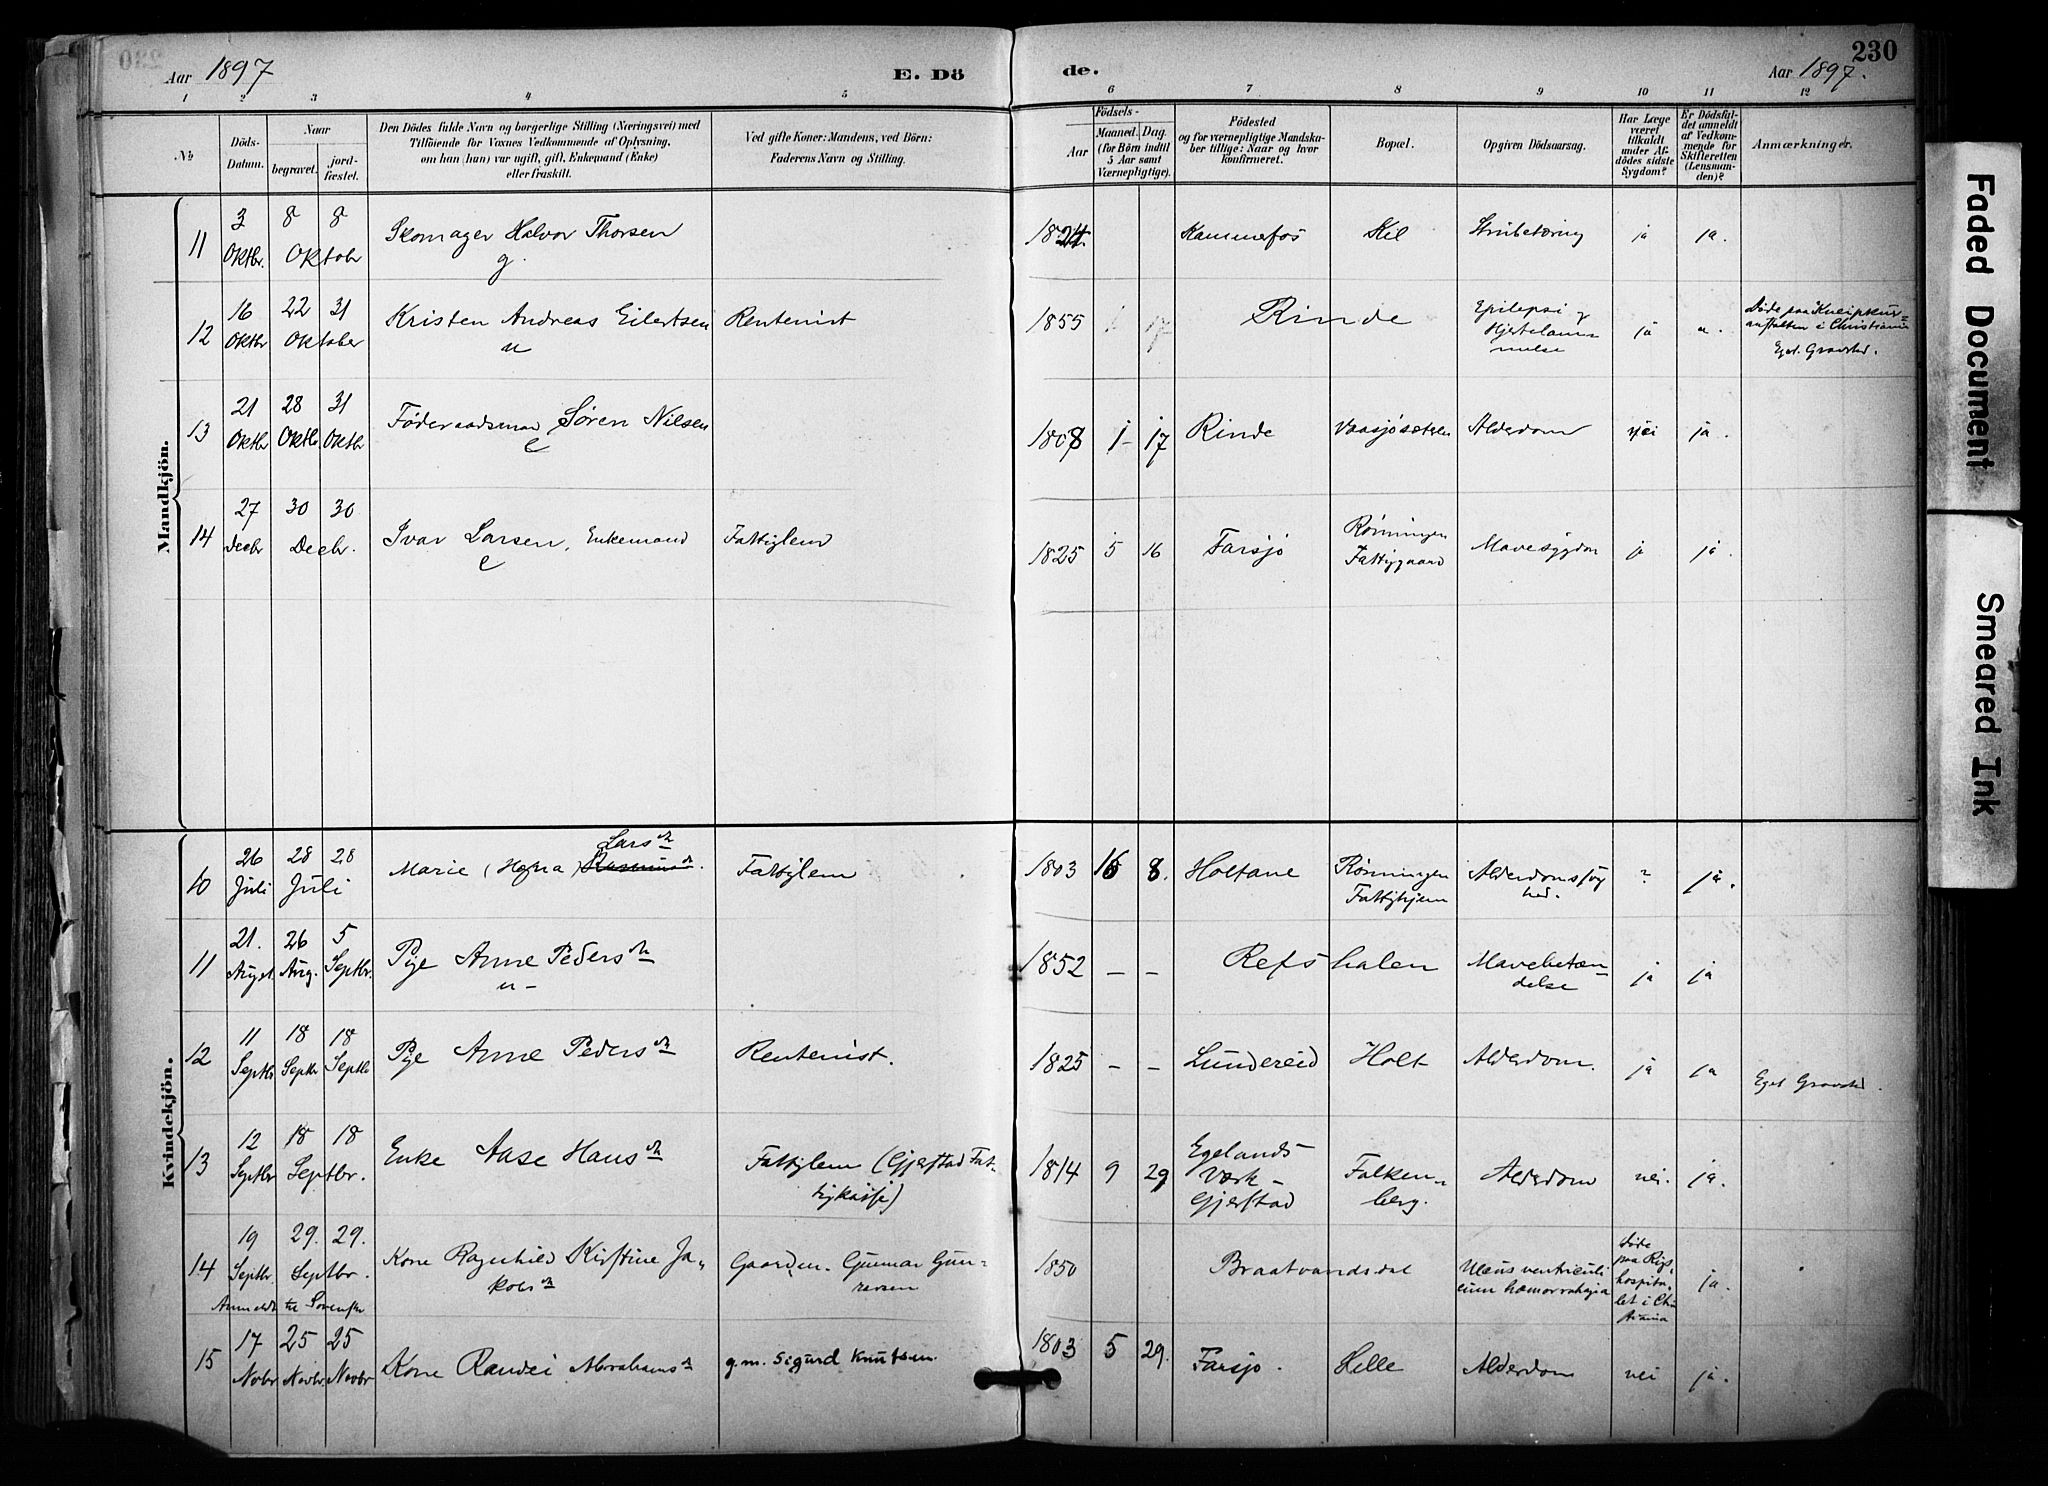 230
Aar 1897
E. Dö
de.
Aar 1897.
1 2 3 4 5 6 7 8 9 10 11 12
No
Döds-Datum.
Naar
begravet.
jord-fæstet.
Den Dödes fulde Navn og borgerlige Stilling (Næringsvei) med
Tilföiende for Voxnes Vedkommende af Oplysning,
om han (hun) var ugift, gift, Enkemand (Enke)
eller fraskilt.
Ved gifte Koner: Mandens, ved Börn:
Faderens Navn og Stilling.
Födsels-
Aar
Maaned. Dag.
(for Börn indtil
5 Aar samt
Værnepligtige).
Födested
og for værnepligtige Mandska-
ber tillige: Naar og hvor
konfirmeret.
Bopæl.
Opgiven Dödsaarsag.
Har Læge
været
tilkaldt
under Af-
dödes sidste
Sygdom?
Er Dödsfal-
det anmeldt
af Vedkom-
mende for
Skifteretten
(Lensman-
den)?
Anmærkninger.
Mandkjön.
11 3 Oktbr. 8 8 Oktobr Skomager Halvor Thorsen g. 1824. Kammefos Kil Strubetæring ja ja.
12 16 Oktbr 22 31 Oktober Kristen Andreas Eilertsen u Rentenist 1855 Rinde Epilepsi og Hjertelam-melse ja Döde paa Kneipkur-anstalten i Christiania Eget Gravsted.
13 21 Oktbr 28 Oktbr. 31 Oktbr Föderaadsmand Søren Nilsen e 1808 1 - 17 Rinde Vaasjøsæteren Alderdom nei ja.
14 27 Decbr 30 30 Decbr. Ivar Larsen, Enkemand e Fattiglem 1825 5 16 Farsjø Rønningen Fattiggaard Mavesygdom ja ja.
Kvindekjön.
10 26 Juli 28 28 Juli Marie (Hefna) Larsdtr. Fattiglem 1803 16 8. Holtane Rønningen Fattighjem Alderdomssvaghed. ? ja.
11 21. August 26 Aug. 5 Septbr. Pige Anne Pedersdtr u - 1852 - - Refshalen Mavebetæn-delse ja ja
12 11 Septbr 18 Septbr 18 Septbr Pige Anne Pedersdtr Rentenist. 1825 - - Lundereid Holt Alderdom. ja ja Eget Gravsted.
13 12 Septbr 18 18 Septbr. Enke Aase Hansdtr Fattiglem (Gjerstad Fat-tigkasse) 1814 9 29 Egelands Værk - Gjerstad Falken-berg. Alderdom nei. ja.
14 19 Septbr. 29. 29. Septbr. Kone Ragnhild Kirstine Ja-kobsdtr Gaardm. Gunnar Gun-narsen 1850 Braatvandsdal Ulcus ventriculi cum hæmorrahagia Döde paa Rigs-hospita-let i Chri-stiania ja.
Anmeldt til Sorenskr.
15 17 Novbr 25 Novbr. 25 Novbr Kone Randei Abrahamsdtr g.m. Sigurd Knutsen. 1803 5 29. Farsjø. Lelle Alderdom nei ja.
Faded Document
Smeared Ink